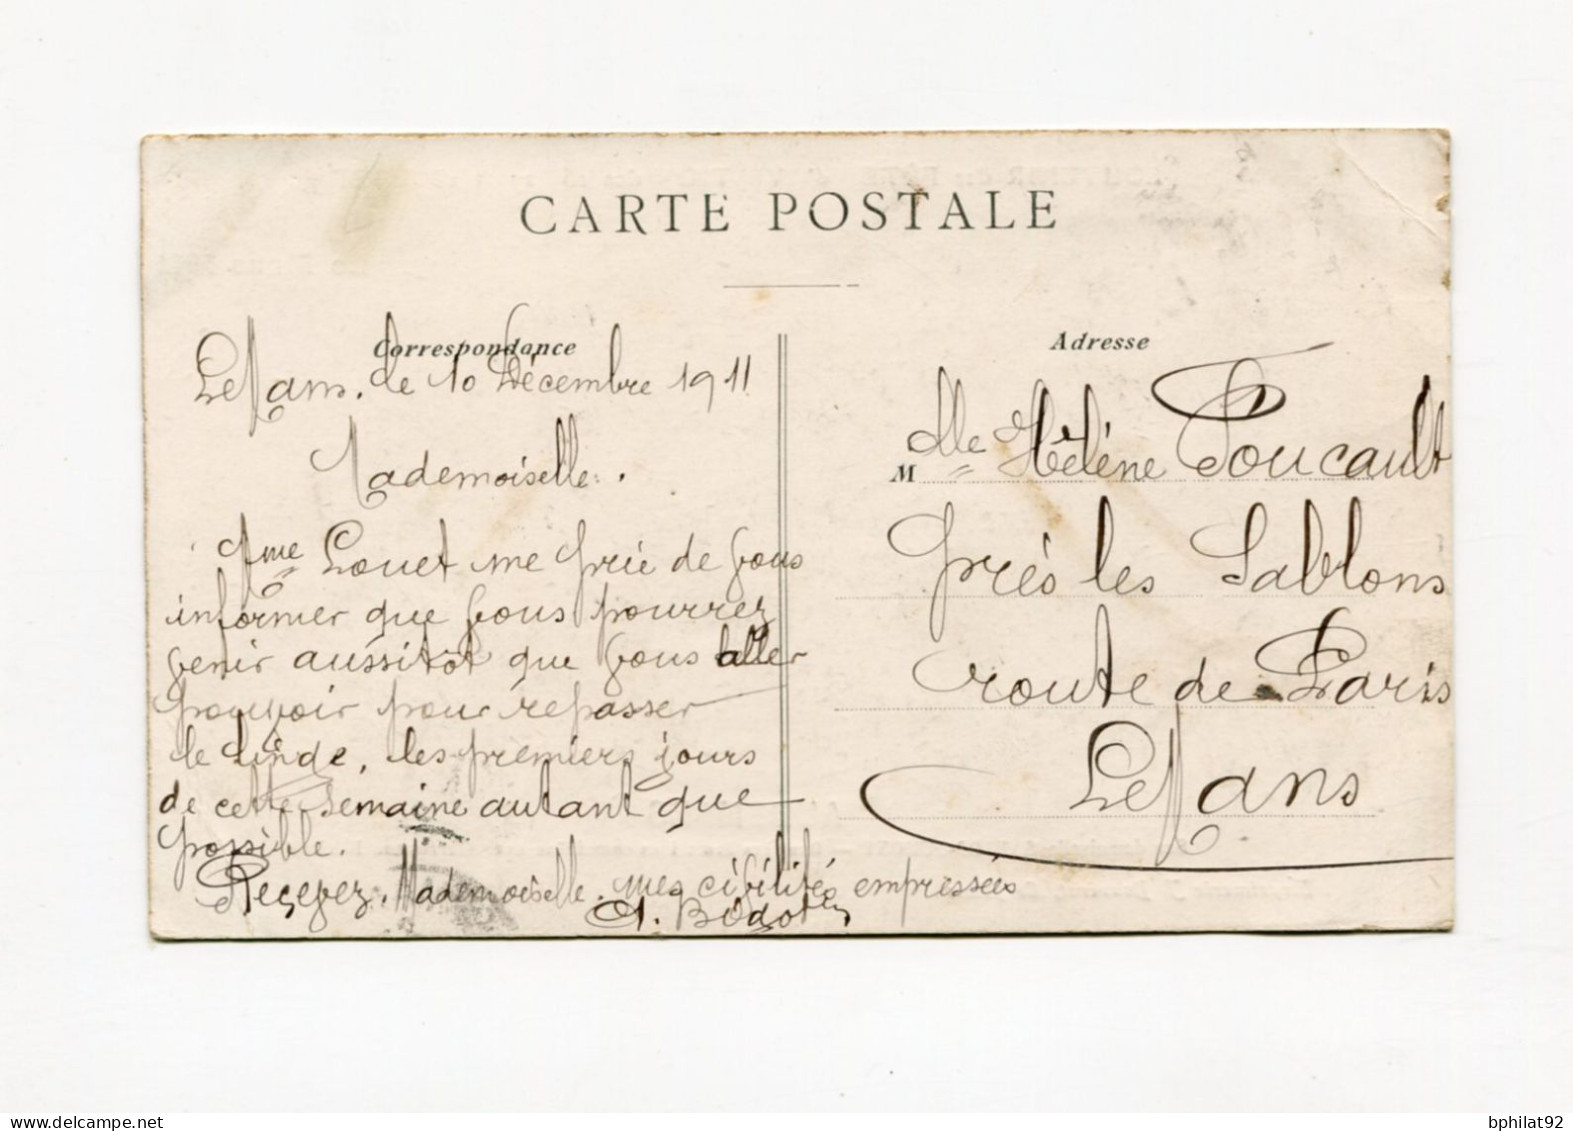 CARTE POSTALE
Correspondance
Le Mans. le 10 Décembre 1911
Mademoiselle.
Mme Louet me prie de vous
informer que vous pourrez
venir aussitôt que vous aller
pouvoir pour repasser
le linge, les premiers jours
de cette semaine autant que
possible.
Recevez, Mademoiselle, mes civilités empressées
A.
Adresse
M lle Hélène Foucault
près les Sablons
route de Paris
Le Mans
delcampe.net
bphilat92